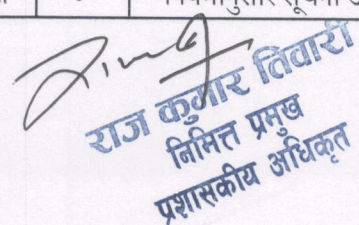 राज कुमार तिवारी
निमित्त प्रमुख
प्रशासकीय अधिकृत